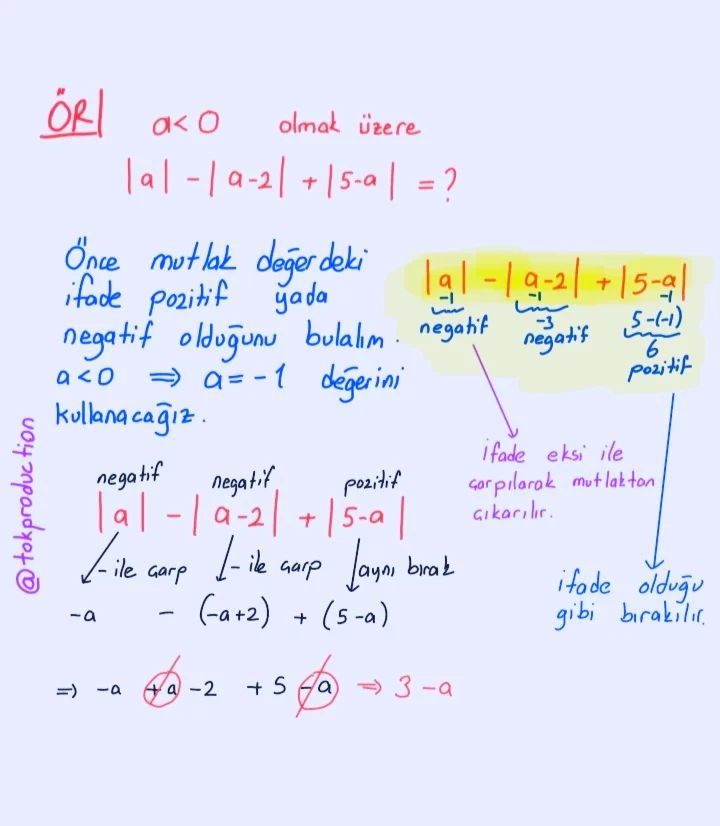 ÖR| a<0 olmak üzere
|a| - |a-2| + |5-a| = ?
Önce mutlak değerdeki
ifade pozitif yada
negatif olduğunu bulalım.
a<0 ⇒ a=-1 değerini
kullanacağız.
|a| - |a-2| + |5-a|
-1 -1 -1
negatif -3 negatif 5-(-1)
6
pozitif
ifade eksi ile
çarpılarak mutlaktan
çıkarılır.
ifade olduğu
gibi bırakılır.
@tokproduction
negatif negatif pozitif
|a| - |a-2| + |5-a|
- ile çarp - ile çarp aynı bırak
-a - (-a+2) + (5-a)
⇒ -a +a -2 +5 -a ⇒ 3-a